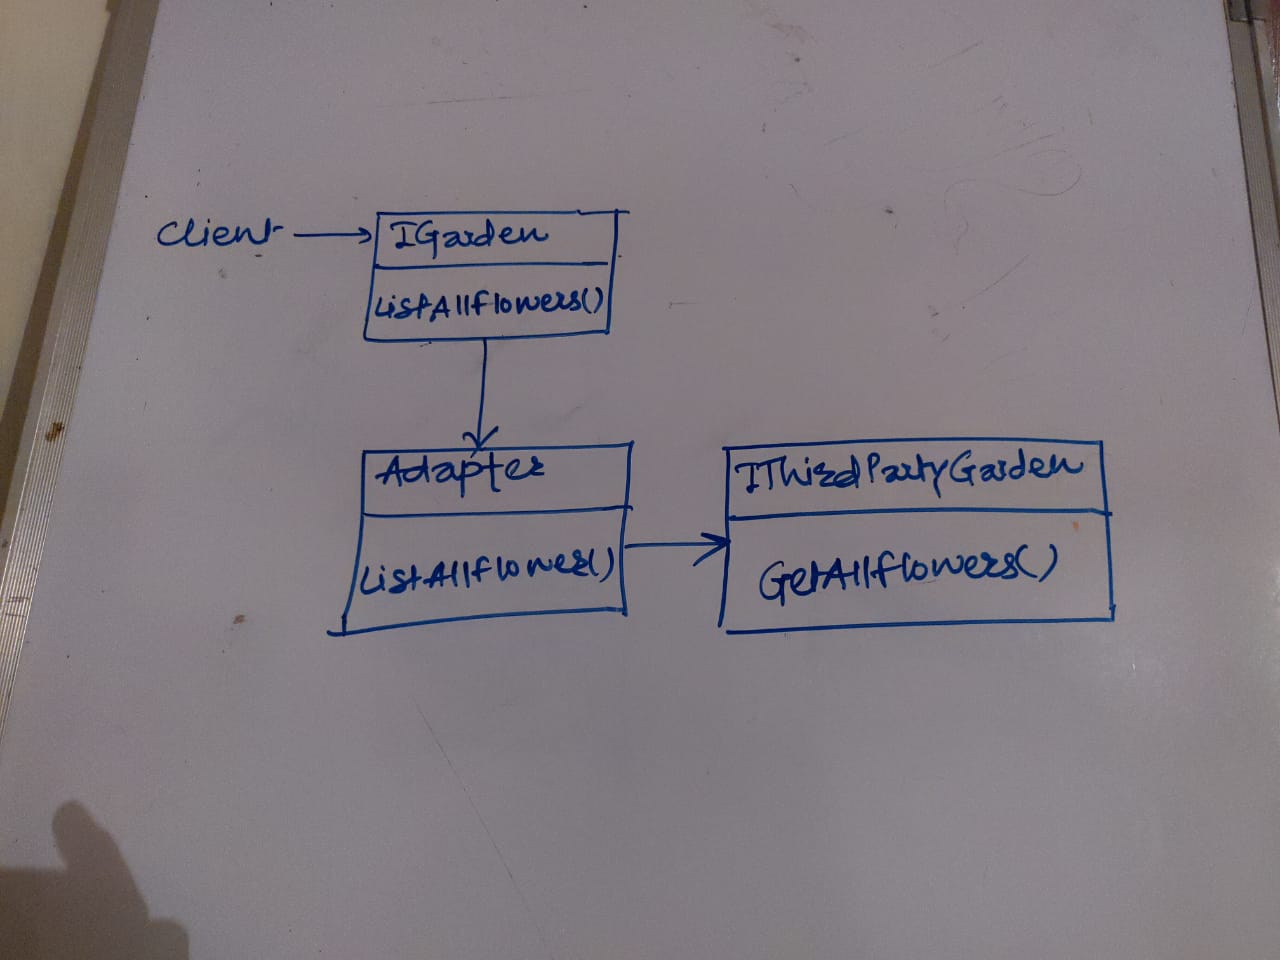 Client
IGarden
ListAllFlowers()
Adapter
ListAllFlower()
IThirdPartyGarden
GetAllFlowers()